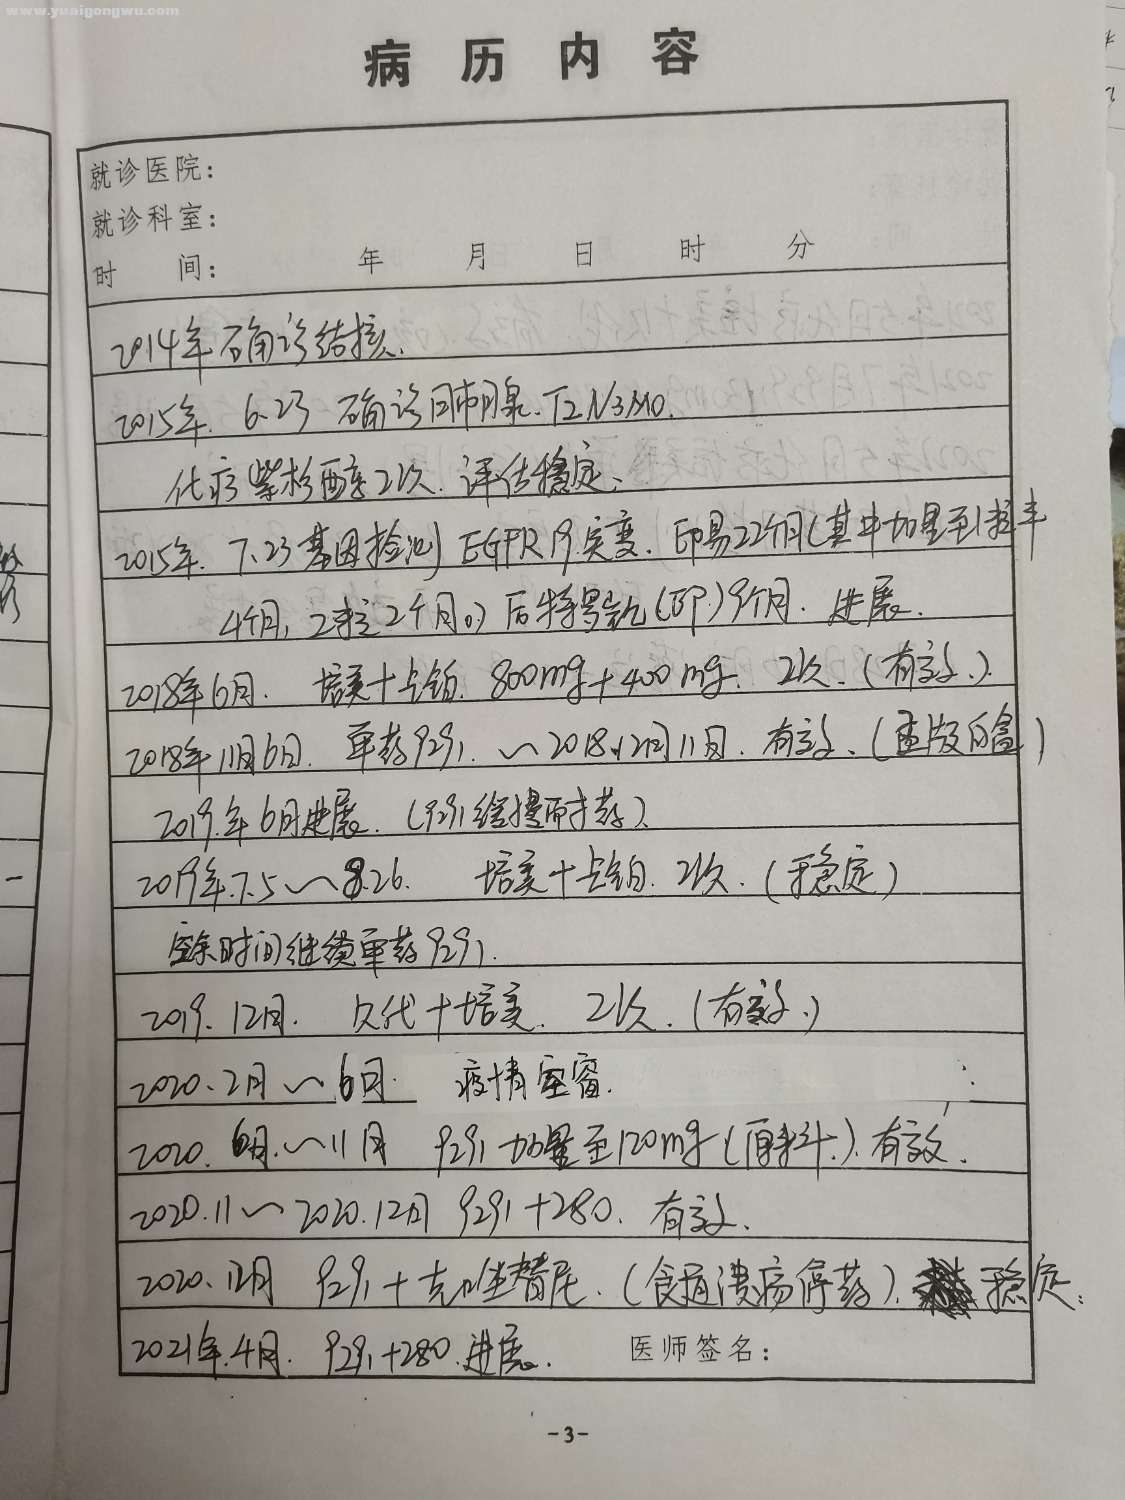 www.yuaigongwu.com
病历内容
就诊医院：
就诊科室：
时 间： 年 月 日 时 分
2014年确诊结核.
2015年. 6.23 确诊肺腺. T2N3M0.
化疗紫杉醇2次. 评估稳定.
2015年. 7.23基因检测 EGFR 19突变. 印易22个月(其中加量至1粒半
4个月, 2粒2个月。) 后特罗凯(印.)9个月. 进展.
2018年6月. 培美+卡铂. 800mg+400mg. 2次. (有效.).
2018年11月6日. 单药9291. ～2018.12月11日. 有效. (孟版白盒)
2019.年6月进展. (9291缓慢耐药).
2019年.7.5～8.26. 培美+卡铂. 2次. (稳定)
其余时间继续单药9291.
2019.12月. 贝伐+培美. 2次. (有效.)
2020.2月～6月. 疫情
2020.6月.～11月 9291加量至120mg(原料.). 有效.
2020.11～2020.12月 9291+280. 有效.
2020.12月 9291+克唑替尼. (食道溃疡停药). 稳定.
2021年.4月. 9291+280.进展. 医师签名：
-3-